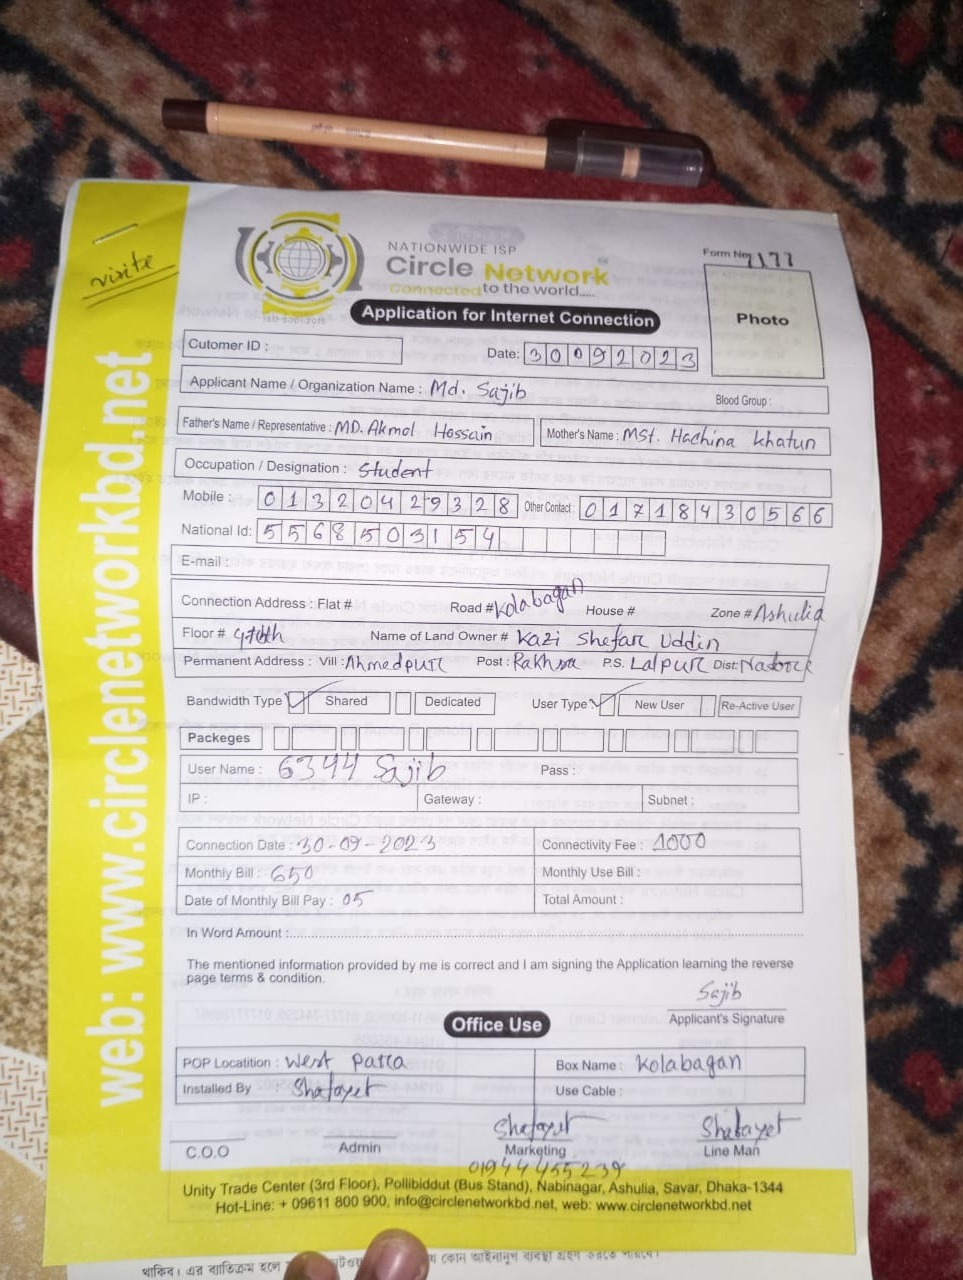 visite
web: www.circlenetworkbd.net
NATIONWIDE ISP
Circle Network
Connected to the world.....
ISO-9001:2015
Form No 177
Photo
Application for Internet Connection
Cutomer ID :
Date: 30092023
Applicant Name / Organization Name : Md. Sajib
Blood Group :
Father's Name / Representative : MD. Akmol Hossain
Mother's Name : MSt. Hachina Khatun
Occupation / Designation : Student
Mobile : 01320429328 Other Contact : 01718430566
National Id: 5568503154
E-mail :
Connection Address : Flat # Road # Kolabagan House # Zone # Ashulia
Floor # Name of Land Owner # Kazi Shefar Uddin
Permanent Address : Vill : Ahmedpurr Post : P.S. Lalpurr Dist:
Bandwidth Type Shared Dedicated User Type New User Re-Active User
Packeges
User Name : 6344 Sajib Pass :
IP : Gateway : Subnet :
Connection Date : 30-09-2023 Connectivity Fee : 1000
Monthly Bill : 650 Monthly Use Bill :
Date of Monthly Bill Pay : 05 Total Amount :
In Word Amount :
The mentioned information provided by me is correct and I am signing the Application learning the reverse
page terms & condition.
Sajib
Applicant's Signature
Office Use
POP Locatition : West Parra Box Name : Kolabagan
Installed By : Shafayet Use Cable :
Shafayet Shafayet
C.O.O Admin Marketing Line Man
01944455239
Unity Trade Center (3rd Floor), Pollibiddut (Bus Stand), Nabinagar, Ashulia, Savar, Dhaka-1344
Hot-Line: + 09611 800 900, info@circlenetworkbd.net, web: www.circlenetworkbd.net
থাকিব। এর ব্যতিক্রম হলে কোন আইনানুগ ব্যবস্থা গ্রহণ করতে পারবে।